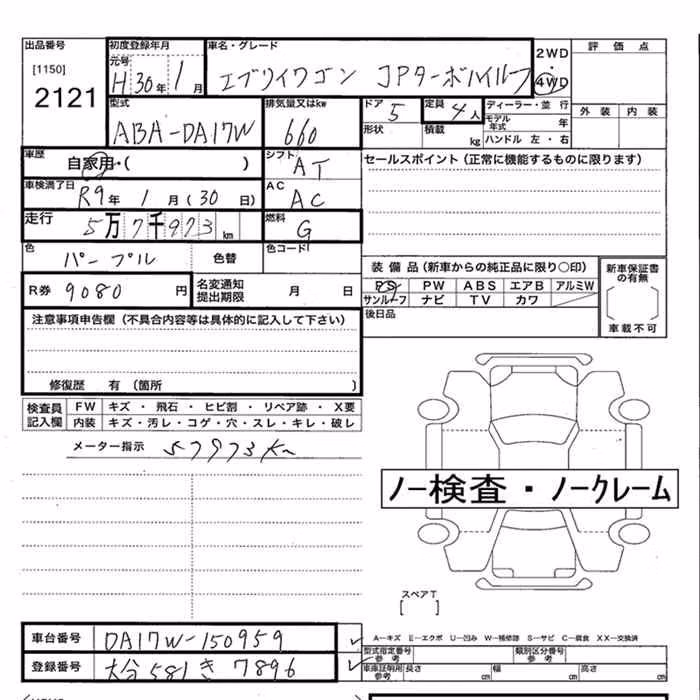 出品番号 初度登録年月 車名・グレード 2WD 評価点
[1150] 元号 H 30年 1月 エブリイワゴン JPターボハイルーフ 4WD
2121 型式 排気量又はkw ドア 5 定員 4人 ディーラー・並行 外装 内装
ABA-DA17W 660 形状 積載 kg モデル年式 年
ハンドル 左・右
車歴 自家用・( ) シフト AT セールスポイント (正常に機能するものに限ります)
車検満了日 R9年 1月 (30日) AC AC
走行 5万7千973km 燃料 G
色 パープル 色替 色コード 装備品 (新車からの純正品に限り○印) 新車保証書の有無
R券 9080円 名変通知提出期限 月 日 PS PW ABS エアB アルミW
サンルーフ ナビ TV カワ 車載不可
注意事項申告欄 (不具合内容等は具体的に記入して下さい) 後日品
修復歴 有 (箇所 )
検査員記入欄 FW キズ・飛石・ヒビ割・リペア跡・X要
内装 キズ・汚レ・コゲ・穴・スレ・キレ・破レ
メーター指示 57973Km
ノー検査・ノークレーム
スペアT
[ ]
車台番号 DA17W-150959 A-キズ E-エクボ U-凹み W-補修跡 S-サビ C-腐食 XX-交換済
登録番号 大分 581 き 7896 型式指定番号 参考 類別区分番号 参考
車庫証明用 参考 長さ cm 幅 cm 高さ cm